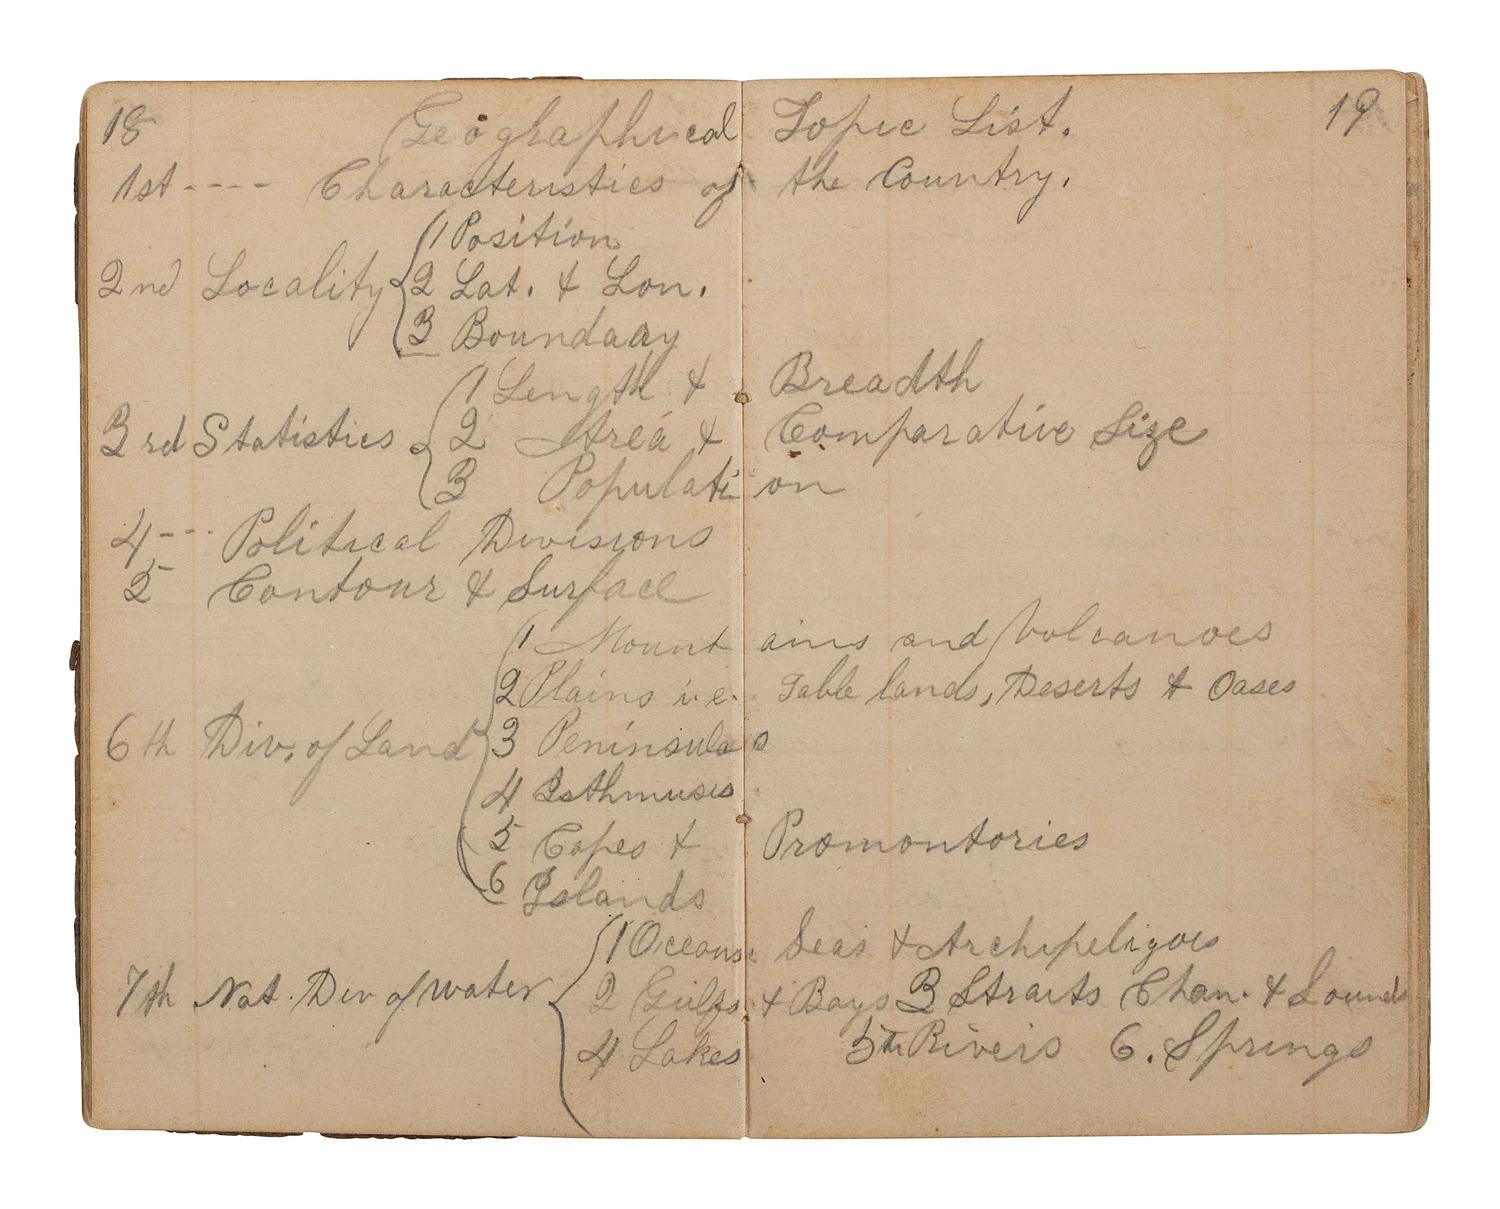 18 Geographical Topic List. 19
1st ---- Characteristics of the Country.
1 Position
2nd Locality 2 Lat. & Lon.
3 Boundary
1 Length & Breadth
3rd Statistics 2 Area & Comparative Size
3 Population
4 --- Political Divisions
5 Contour & Surface
1 Mountains and Volcanoes
2 Plains i.e. Table lands, Deserts & Oases
6th Div. of Land 3 Peninsulas
4 Isthmuses
5 Capes & Promontories
6 Islands
1 Oceans Seas & Archipeligoes
7th Nat. Div of water 2 Gulfs & Bays 3 Straits Chan. & Sounds
4 Lakes 5th Rivers 6. Springs